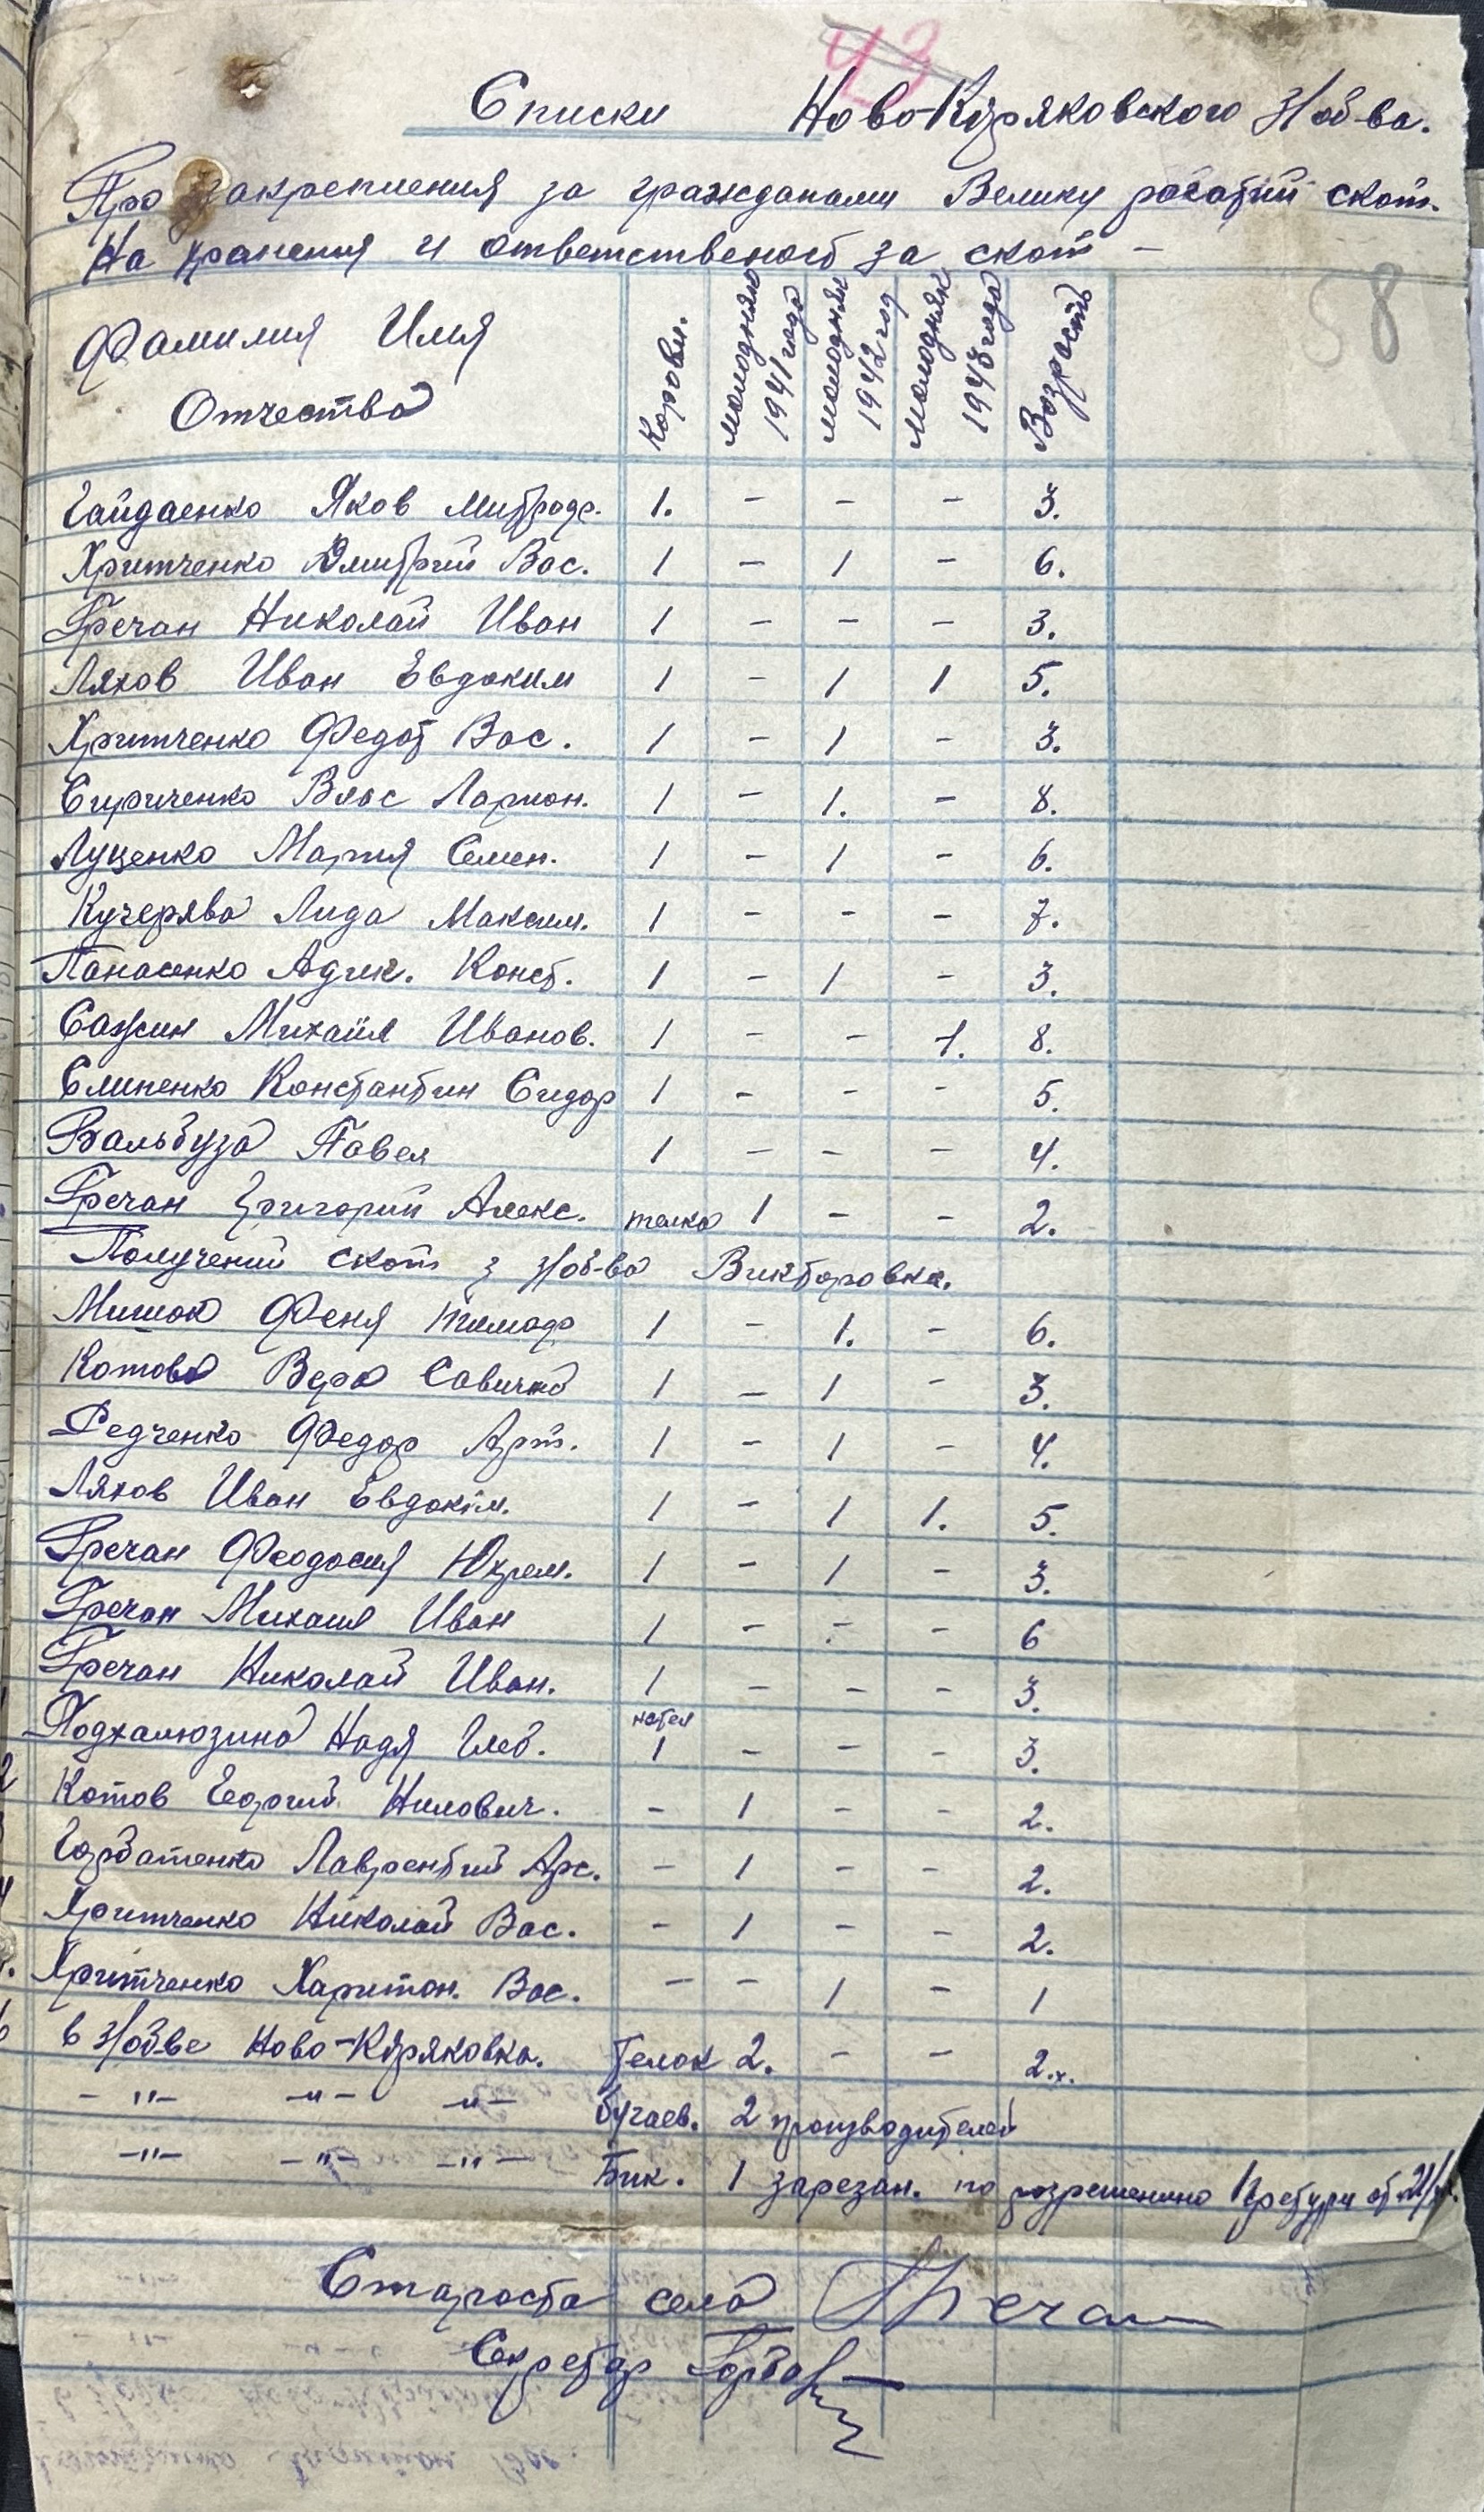 43
Списки Ново-Куряковского З/об-ва.
Про закрепления за гражданами Велику рогатий скот.
На хранения и ответственост за скот —
58
Фамилия Имя Отчества Коровы. молодняк 1941 года молодняк 1942 год молодняк 1943 года Возрость
Гайдаенко Яков Митрофр. 1. - - - 3.
Хритченко Дмитрий Вас. 1 - 1 - 6.
Гречан Николай Иван 1 - - - 3.
Ляхов Иван Евдоким 1 - 1 1 5.
Хритченко Федот Вас. 1 - 1 - 3.
Сириченко Влас Ларион. 1 - 1. - 8.
Луценко Мария Семен. 1 - 1 - 6.
Кучерява Лида Максим. 1 - - - 7.
Панасенко Конст. 1 - 1 - 3.
Сажин Михаил Иванов. 1 - - 1. 8.
Слипенко Константин Сидор 1 - - - 5.
Вальбуза Павел 1 - - - 4.
Гречан Григорий Алекс. телка 1 - - 2.
Получений скот з з/об-ва Викторовка.
Мишок Феня Тимофр 1 - 1. - 6.
Котова Вера Савична 1 - 1 - 3.
Редченко Федор Арт. 1 - 1 - 4.
Ляхов Иван Евдоким. 1 - 1 1. 5.
Гречан Феодосия Юхрем. 1 - 1 - 3.
Гречан Михаил Иван 1 - - - 6
Гречан Николай Иван. 1 - - - 3.
Подхалюзина Надя Глеб. нетел 1 - - - 3.
Котов Георгий Нилович. - 1 - - 2.
Горбатенко Лаврентий Арс. - 1 - - 2.
Хритченко Николай Вас. - 1 - - 2.
Хритченко Харитон. Вас. - - 1 - 1
в З/об-ве Ново-Куряковка. Телок 2. - - 2.х.
-"- -"- -"- бугаев. 2 производителей
-"- -"- -"- Бик. 1 зарезан. по розрешению
Староста села Гречан
Секретар